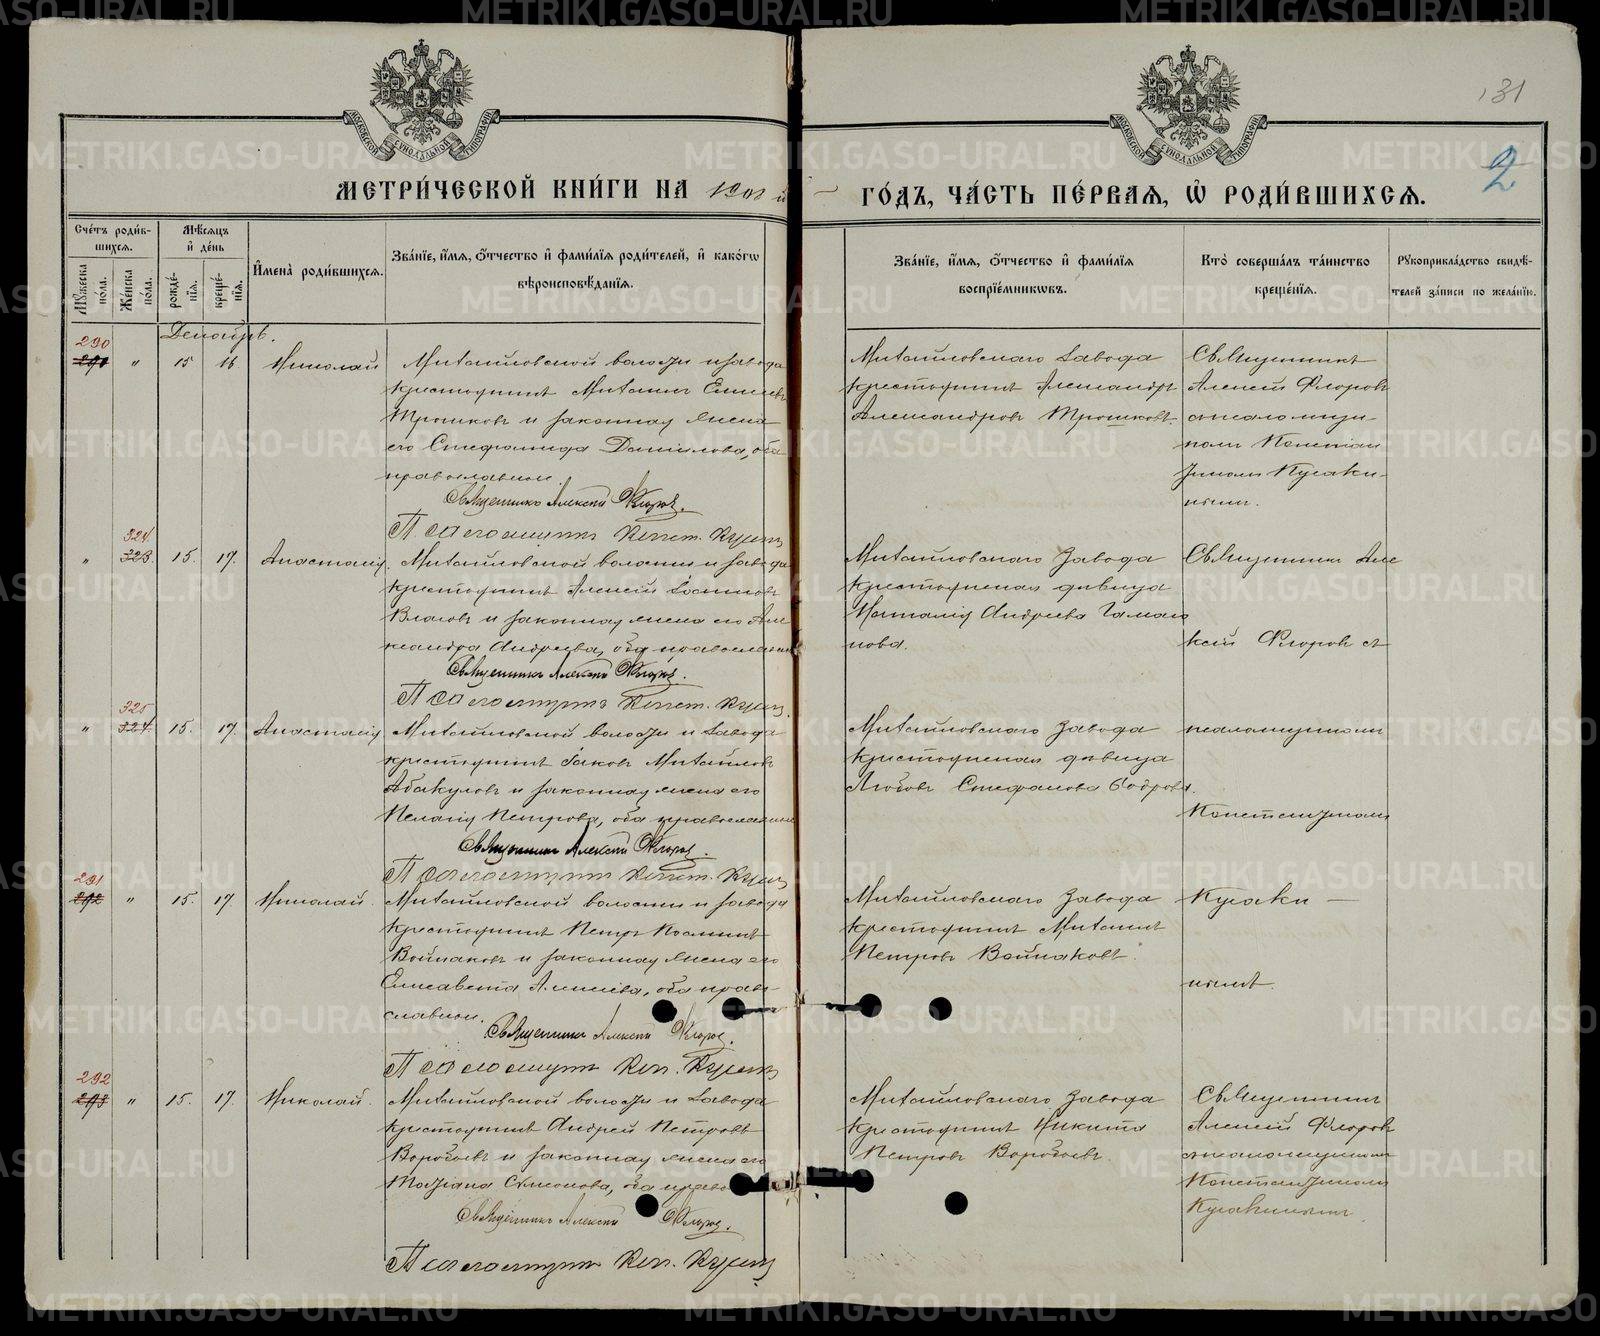 131
2
МЕТРИ́ЧЕСКОЙ КНИ́ГИ НА 1901 й ГО́ДЪ, ЧА́СТЬ ПЕ́РВАЯ, Ѡ҆ РОДИ́ВШИХСЯ.
МОСКОВСКОЙ СѴНОДАЛЬНОЙ ТИПОГРАФІИ
МОСКОВСКОЙ СѴНОДАЛЬНОЙ ТИПОГРАФІИ
Сче́тъ роди́в-
шихся.
Му́жеска по́ла.
Же́нска по́ла.
Мѣ́сяцъ и҆ де́нь
рожде́-нїя.
креще́-нїя.
И҆мена̀ роди́вшихся.
Зва́нїе, и҆́мя, ѻ҆́тчество и҆ фами́лїя роди́телей, и҆ како́гѡ
вѣроисповѣ́данїя.
Зва́нїе, и҆́мя, ѻ҆́тчество и҆ фами́лїя
воспрїе́мникѡвъ.
Кто̀ соверша́лъ та́инство
креще́нїя.
Рꙋкоприкла́дство свидѣ́-
телей за́писи по жела́нїю.
Декабрь.
290
291 " 15 16 Николай
Михайловской волости и завода
крестьянинъ Михаилъ Елисеевъ
Трошковъ и законная жена
его Стефанида Данилова, оба
православные.
Священникъ Алексѣй Флоровъ.
Псаломщикъ Конст. Кусакинъ
Михайловскаго завода
крестьянинъ Александръ
Александровъ Трошковъ.
Священникъ
Алексѣй Флоровъ
съ псаломщи-
комъ Констан
тиномъ Кусаки-
нымъ.
324
" 323. 15. 17. Анастасія.
Михайловской волости и завода
крестьянинъ Алексѣй
Власовъ и законная жена его Але
ксандра Андреева, оба православные
Священникъ Алексѣй Флоровъ.
Псаломщикъ Конст. Кусакинъ.
Михайловскаго завода
крестьянская дѣвица
Наталія Андреева
Священникъ Але
ксѣй Флоровъ съ
325
" 324. 15. 17. Анастасія
Михайловской волости и завода
крестьянинъ Іаковъ Михайловъ
Абакуловъ и законная жена его
Пелагія Петрова, оба православные
Священникъ Алексѣй Флоровъ.
Псаломщикъ Конст. Кусакинъ
Михайловскаго завода
крестьянская дѣвица
Любовь Стефанова Боброва.
псаломщикомъ
Константиномъ
291
292 " 15. 17. Николай.
Михайловской волости и завода
крестьянинъ Петръ Косминъ
Войнаковъ и законная жена его
Елисавета Алексѣева, оба право-
славные.
Священникъ Алексѣй Флоровъ.
Псаломщикъ Кон. Кусакинъ
Михайловскаго завода
крестьянинъ Михаилъ
Петровъ Войнаковъ.
Кусаки —
нымъ.
292
293 " 15. 17. Николай.
Михайловской волости и завода
крестьянинъ Андрей Петровъ
Воробьевъ и законная жена его
Татіана Симонова, оба право
Священникъ Алексѣй Флоровъ.
Псаломщикъ Кон. Кусакинъ
Михайловскаго завода
крестьянинъ Никита
Петровъ Воробьевъ.
Священникъ
Алексѣй Флоровъ
съ псаломщикомъ
Константиномъ
Кусакинымъ.
METRIKI.GASO-URAL.RU